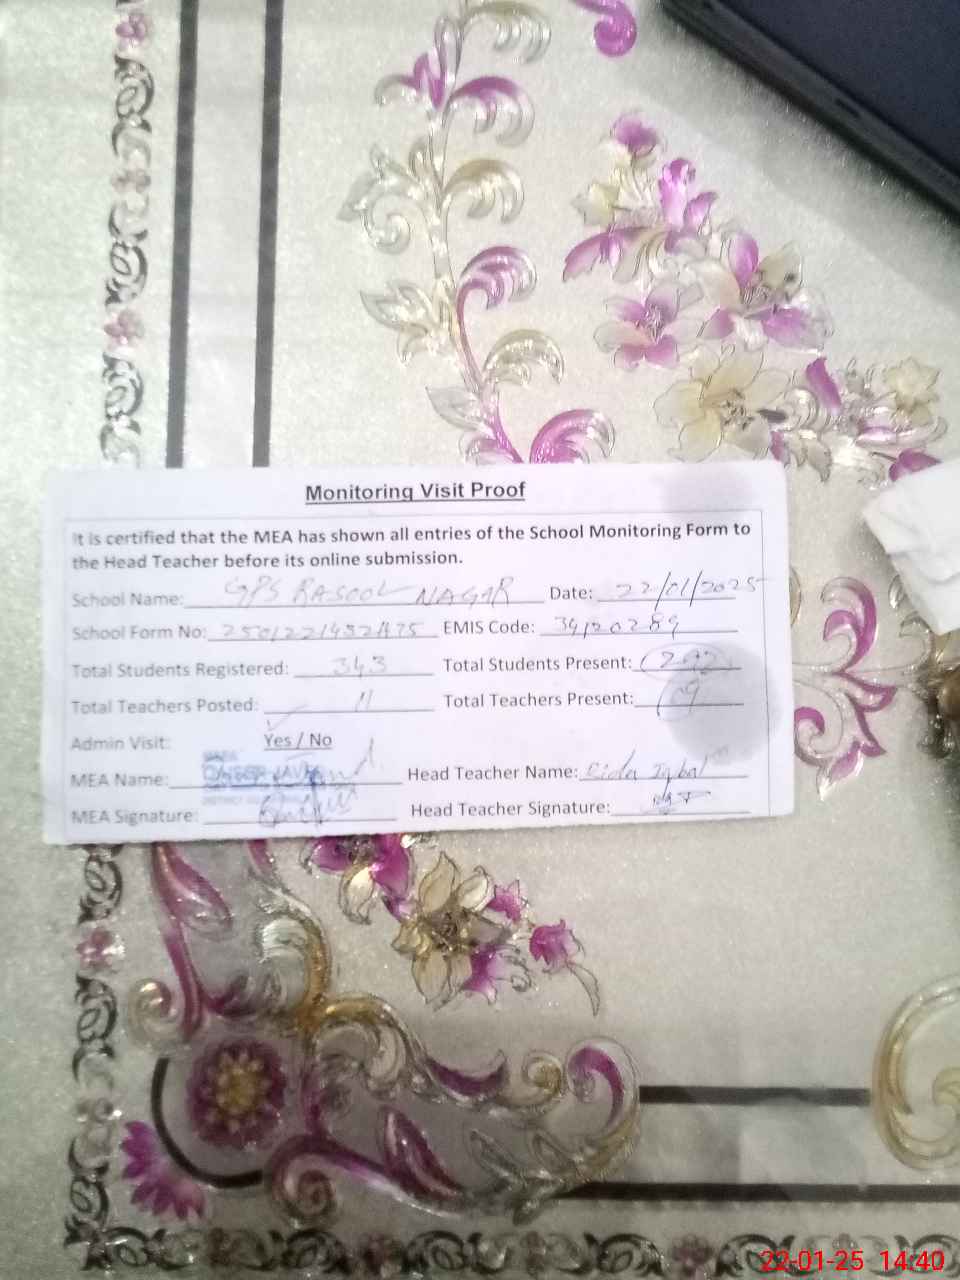 Monitoring Visit Proof
It is certified that the MEA has shown all entries of the School Monitoring Form to
the Head Teacher before its online submission.
School Name: GPS RASOOL NAGAR Date: 22/01/2025
School Form No: EMIS Code: 34120289
Total Students Registered: 343 Total Students Present: 292
Total Teachers Posted: 11 Total Teachers Present: 09
Admin Visit: Yes / No
MEA Name: Head Teacher Name: Iqbal
MEA Signature: Head Teacher Signature:
22-01-25 14:40